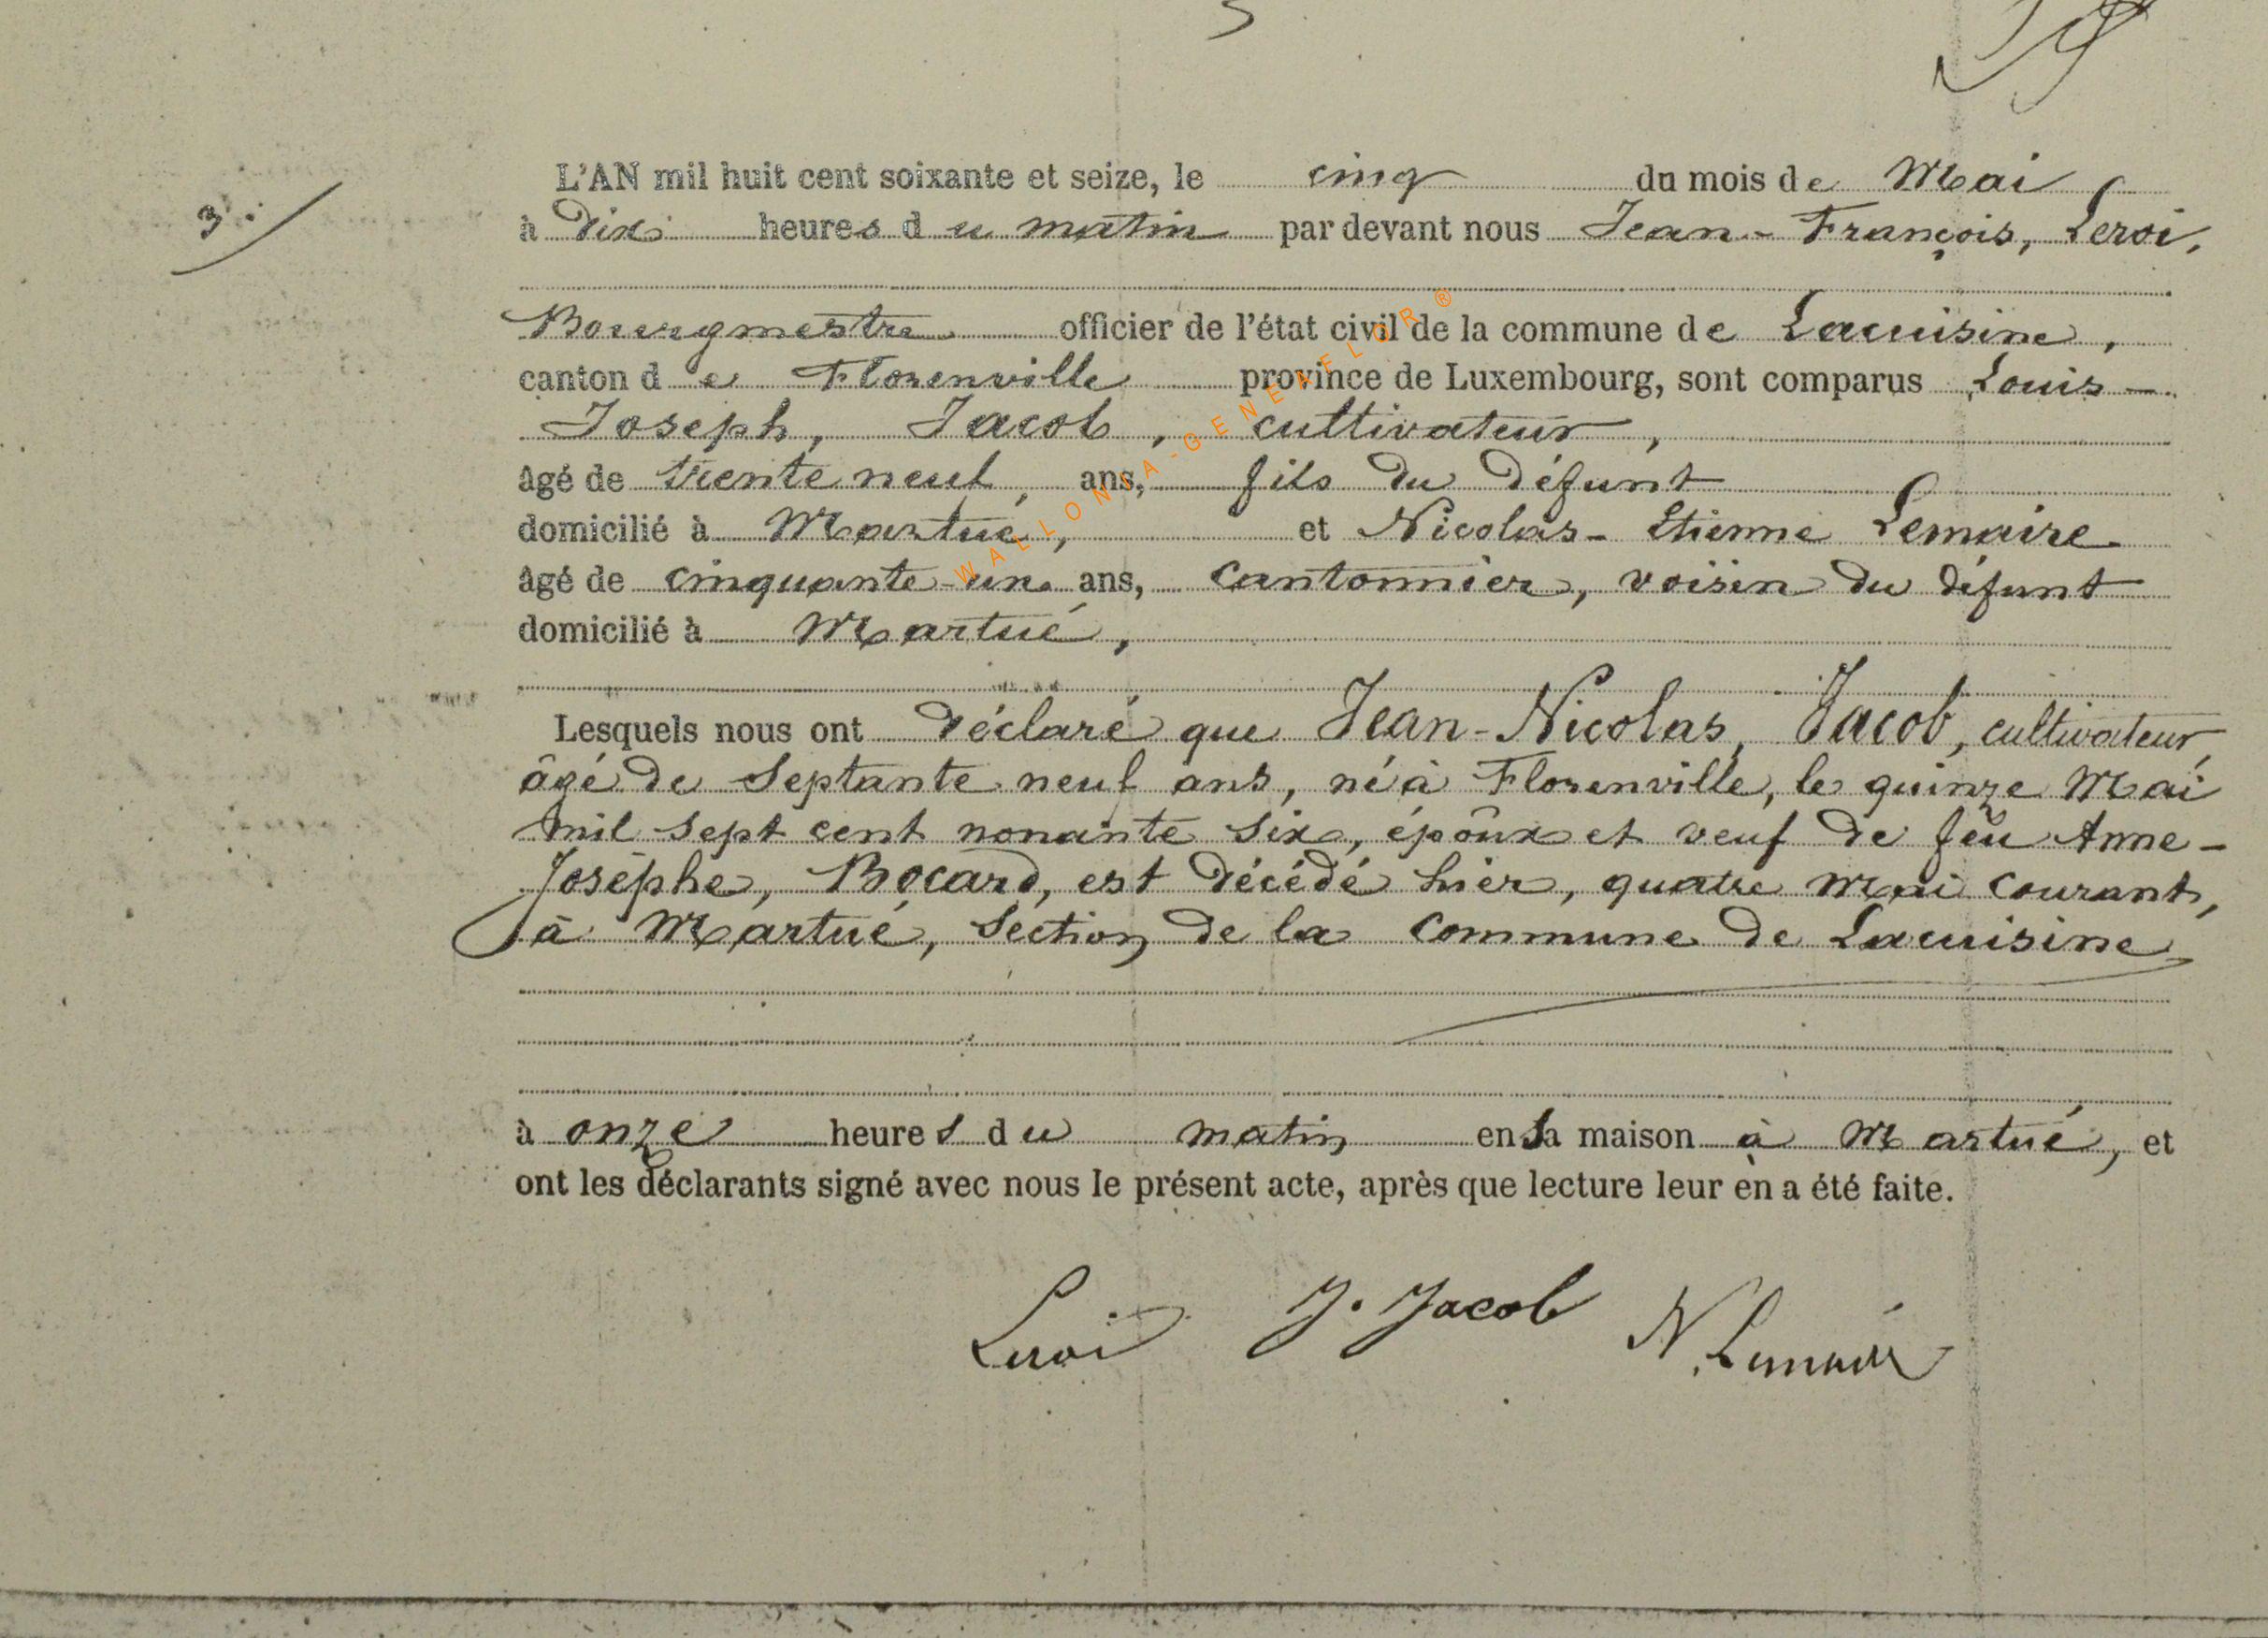 3.
L'AN mil huit cent soixante et seize, le cinq du mois de Mai
à Dix heures du matin par devant nous Jean-François, Leroi,
Bourgmestre officier de l'état civil de la commune de Lacuisine,
canton de Florenville province de Luxembourg, sont comparus Louis-
Joseph, Jacob, cultivateur,
âgé de trente neuf, ans, fils du défunt
domicilié à Martué, et Nicolas-Etienne Lemaire
âgé de cinquante-un ans, cantonnier, voisin du défunt
domicilié à Martué,
Lesquels nous ont déclaré que Jean-Nicolas, Jacob, cultivateur,
âgé de Septante neuf ans, né à Florenville, le quinze Mai
mil sept cent nonante six, époux et veuf de feu Anne-
Josèphe, Bocard, est décédé hier, quatre Mai courant,
à Martué, Section de la commune de Lacuisine
à onze heures du matin en sa maison à Martué, et
ont les déclarants signé avec nous le présent acte, après que lecture leur en a été faite.
Leroi J. Jacob N. Lemaire
WALLONIA-GENEAFELOR®